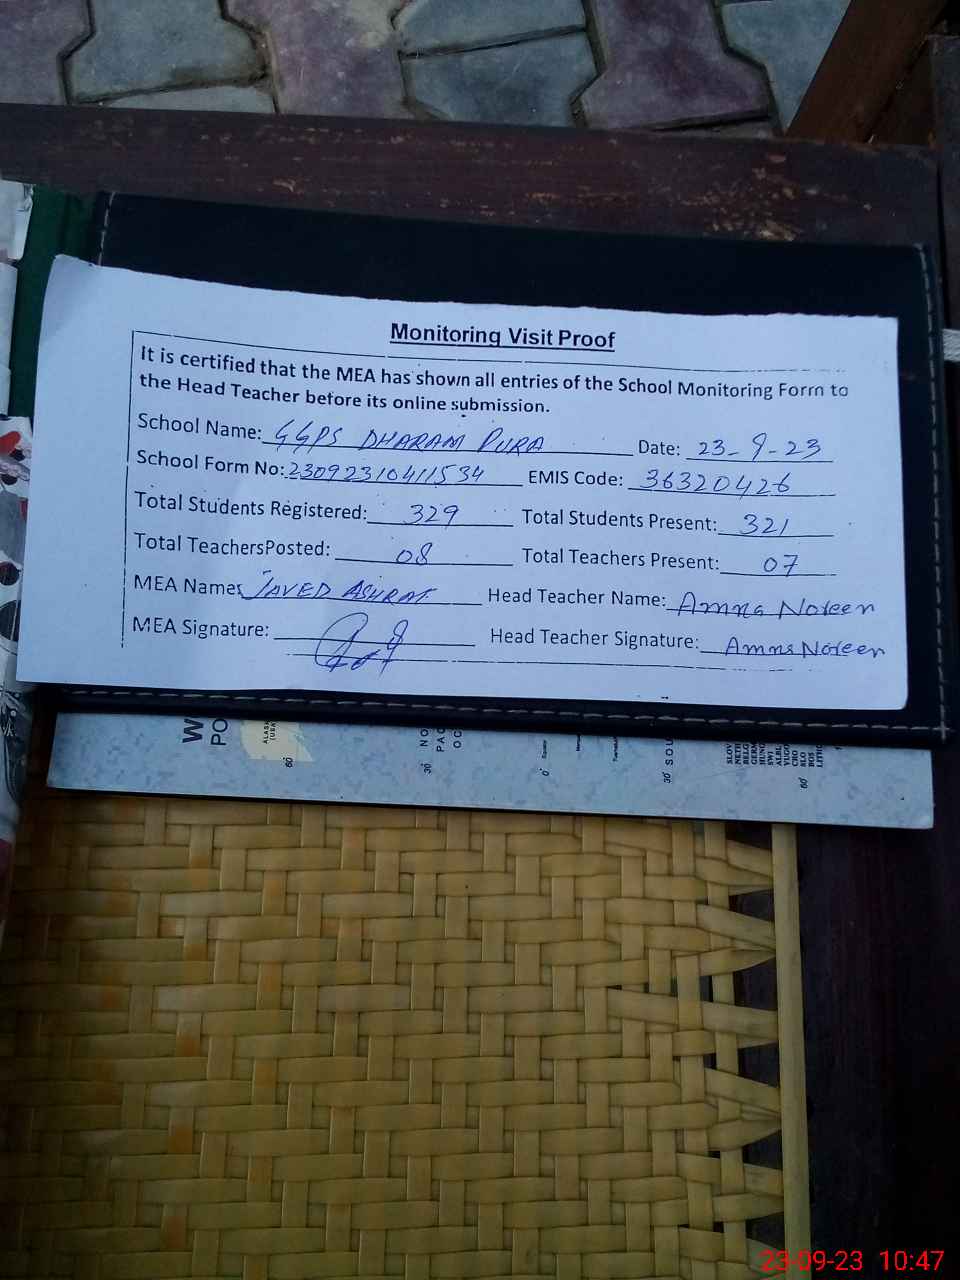 Monitoring Visit Proof
It is certified that the MEA has shown all entries of the School Monitoring Form to
the Head Teacher before its online submission.
School Name: GGPS DHARAM PURA Date: 23-9-23
School Form No: 23092310411534 EMIS Code: 36320426
Total Students Registered: 329 Total Students Present: 321
Total TeachersPosted: 08 Total Teachers Present: 07
MEA Name: JAVED ASHRAF Head Teacher Name: Amna Noreen
MEA Signature: Head Teacher Signature: Amna Noreen
W
PO
ALAS
(USA
NO
PAC
OC
SOU
60
30
0
Equator
30
60
SLOV
NETH
BELG
GERM
HUNG
SWI
ALBU
YUGO
CRO
SLO
BOS
LITH
23-09-23 10:47